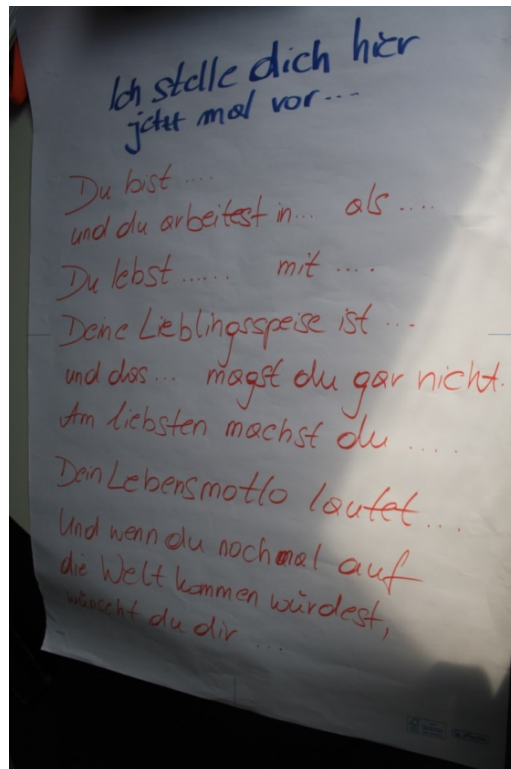 Ich stelle dich hier
jetzt mal vor...
Du bist ....
und du arbeitest in... als ....
Du lebst ...... mit ....
Deine Lieblingsspeise ist ...
und das... magst du gar nicht.
Am liebsten machst du ....
Dein Lebensmotto lautet...
Und wenn du nochmal auf
die Welt kommen würdest,
wünscht du dir ...